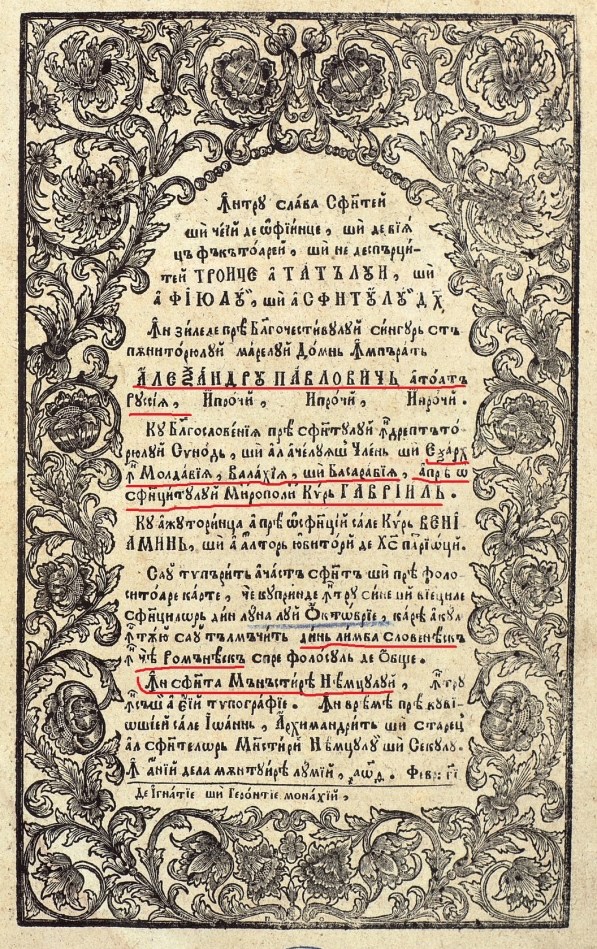 Ꙟтру слава Сфи́тей
ши че́їй де ѡ҆фїи́нце, ши де вїѧ́
цъ фъкъто́арей, ши не деспърци́
тей ТРО́ИЧЕ а ТА́ТЪЛУИ, ши
а ФІ́ЮЛУЙ, ши а СФИ́ТУЛУЙ Д҃Х
Ꙟ зи́леде прѣ Бл҃гочести́вулуй си́нгурь стъ
пѫнито́рюлуй ма́релуй До́мнь Ꙟпъра́ть
А҆ЛЕѮА́НДРУ ПА́ВЛОВИЧЬ а то́атъ
Русїѧ, И҆про́чи, И҆про́чи, И҆про́чи.
Ку Бл҃гослове́нїѧ прѣ сфи́нтулуй ꙟдрептъто́
рюлуй Сѵно́дь, ши ал а҆че́луѧш Чле́нь ши Еѯа́рх
ꙟ Молда́вїѧ, Вала́хїѧ, ши Басара́вїѧ, а прѣ ѡ
сфинци́тулуй Мирополи́ Ку́рь ГАВРІИ́ЛЬ.
Ку ажуто́ринца а прѣ ѡ҆сфинці́й са́ле Ку́рь ВЕНІ
АМИ́НЬ, ши а а҆лто́рь юбито́ри де Хс҃ патрїѡ́ци.
Сау типъри́ть ача́стъ сфи́тъ ши прѣ фоло
сито́аре ка́рте, че купри́нде ꙟтру си́не ши вїе́циле
сфинци́лѡрь дин лу́на луй Ѻ҆кто́мврїе, ка́рѣ а҆ку́м
ꙟтѫ́ю сау тълмъчи́ть ди́нь ли́мба Слове́нѣскъ
ꙟ чѣ Ромѫнѣскъ спре фоло́суль де о́бще.
Ꙟ сфи́та Мънъсти́рѣ Нѣ́мцулуй, ꙟтру
ꙟсъш а е҆й типогра́фїе. Ꙟ врѣ́мѣ прѣ куві
ѡшї́ей са́ле Іѡа́ннь, А҆рхимандри́ть ши ста́рец
ал сфи́телѡрь Мънъсти́ри Нѣ́мцулуй ши Се́кулу.
Ꙟ а́нїй де ла мѫнтуи́рѣ лу́мїй, ҂аѡ҃. Февр: гі҃
Де Игна́тїе ши Геро́нтїе мона́хїй,